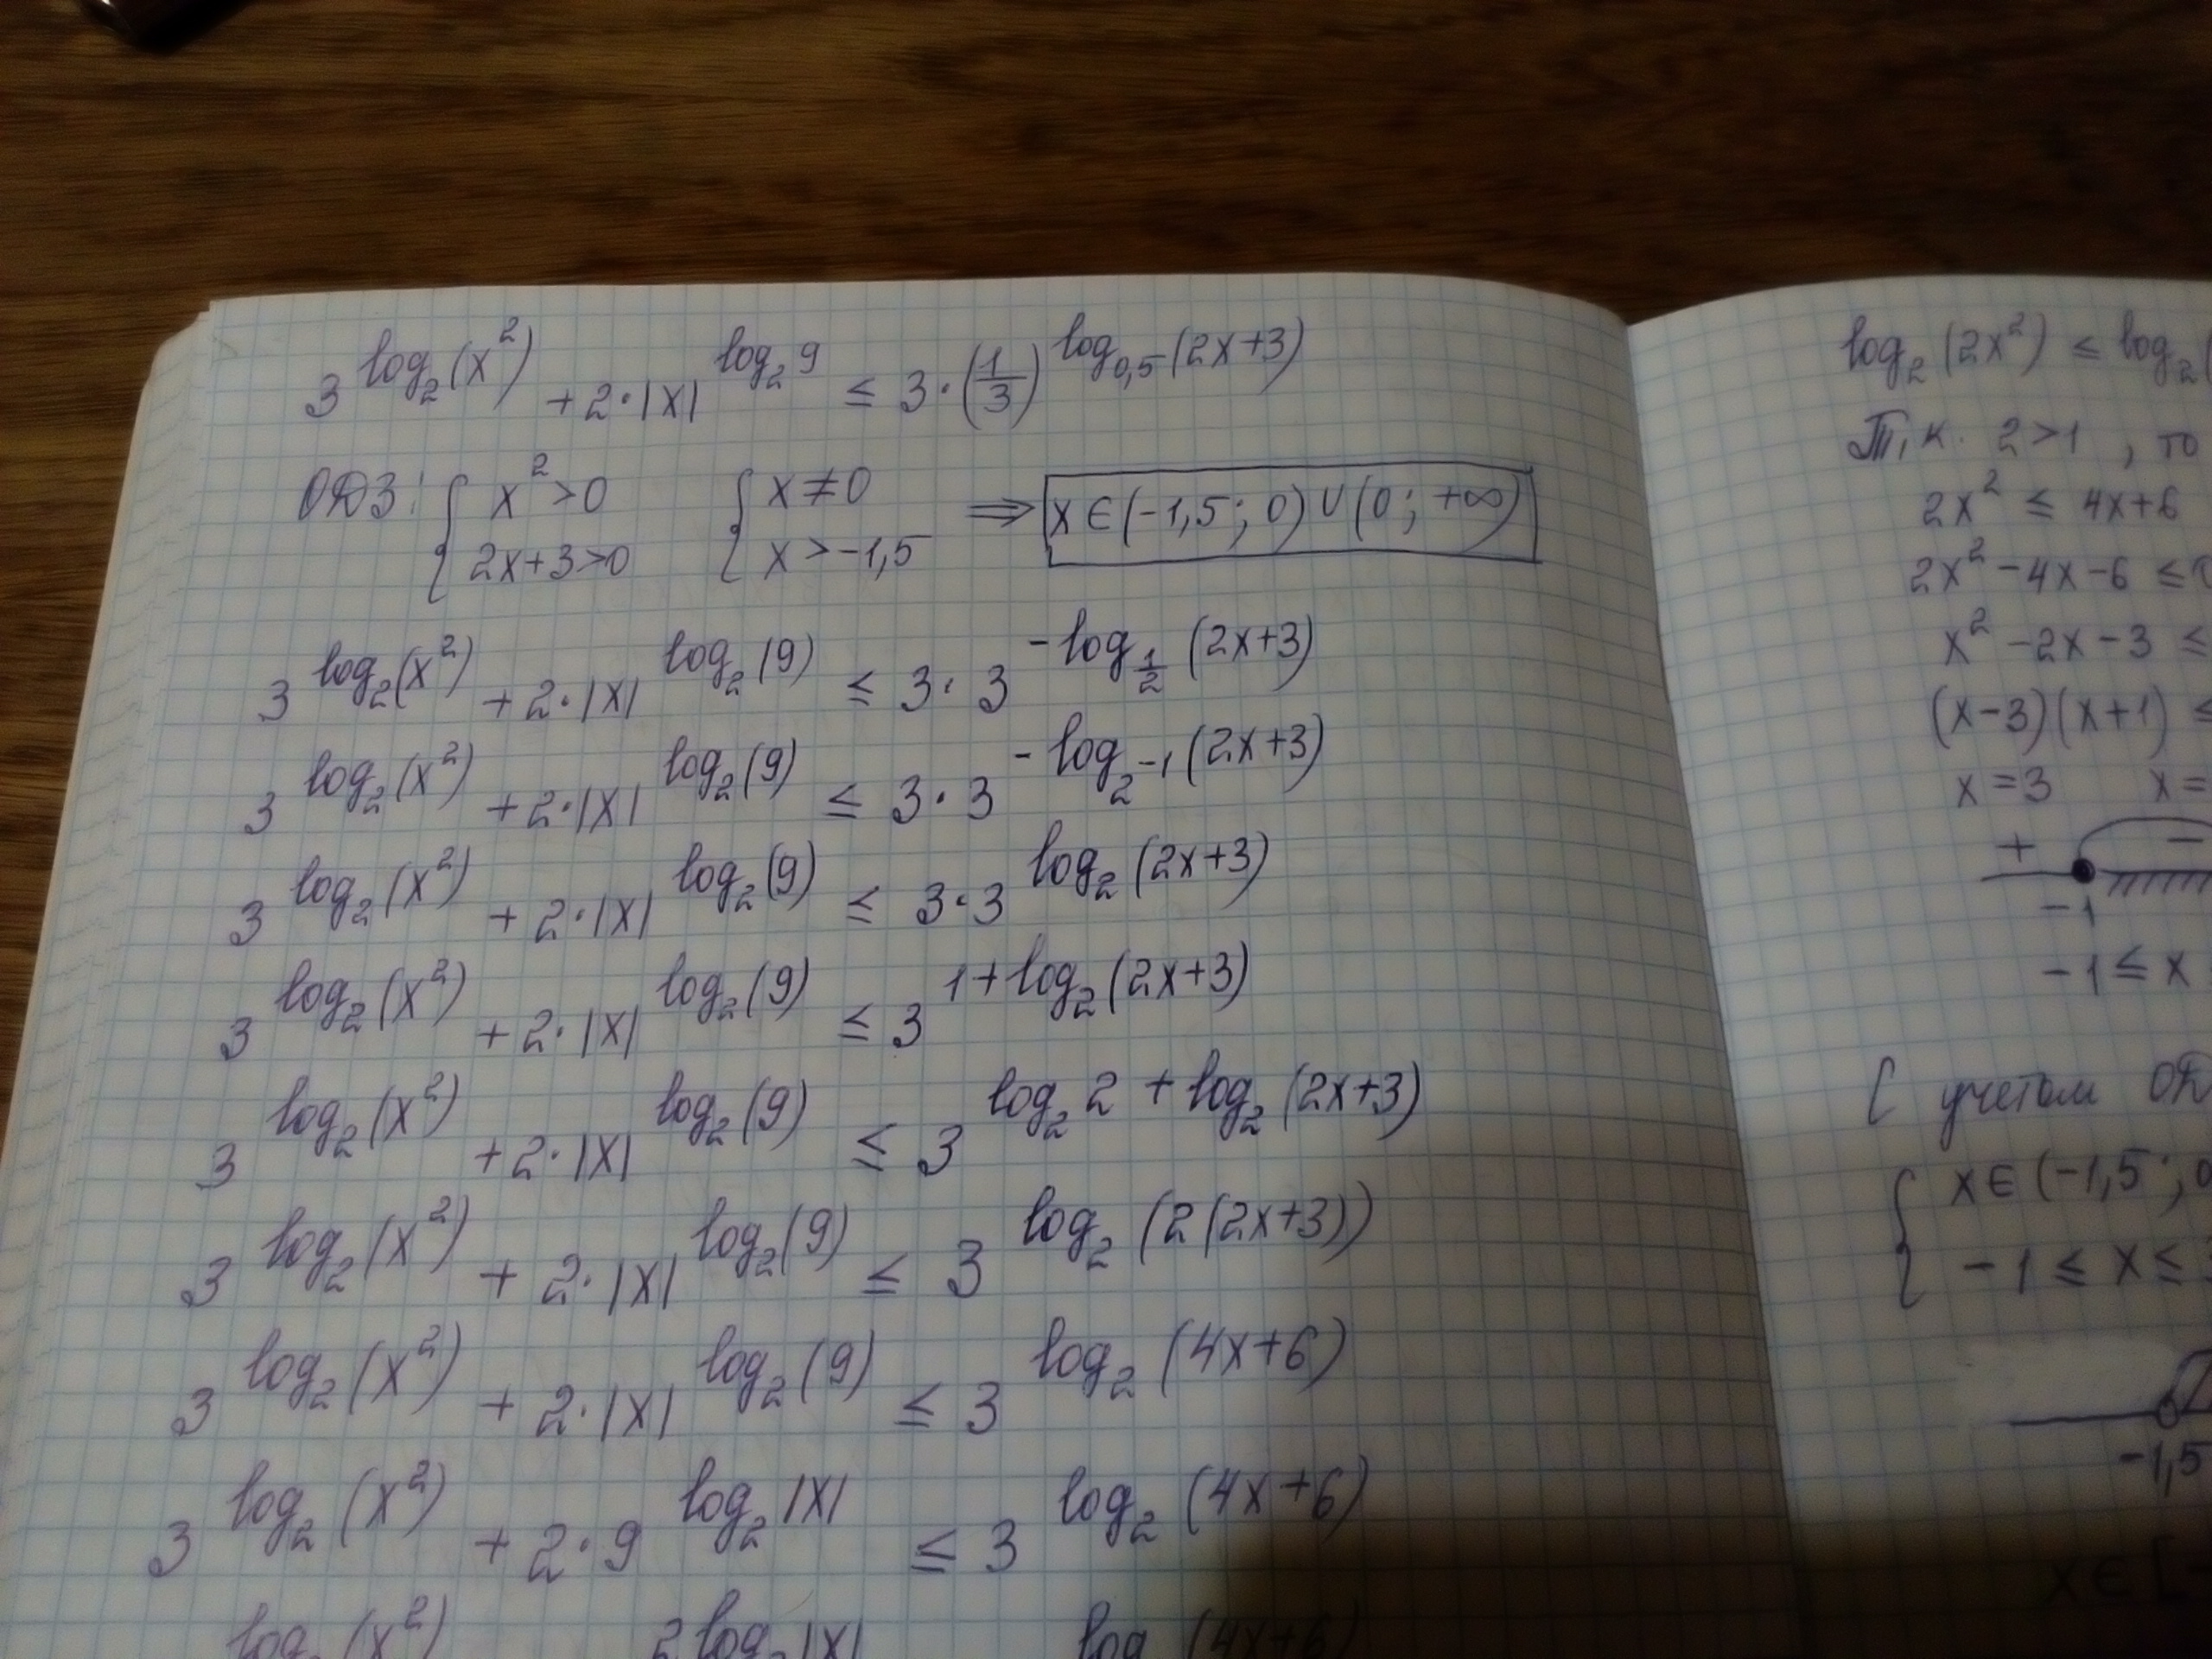 3^log₂(x²) + 2·|x|^log₂9 ≤ 3·(1/3)^log₀,₅(2x+3)
ОДЗ: { x²>0 { x≠0 ⇒ x∈(-1,5; 0)∪(0; +∞)
2x+3>0 x>-1,5
3^log₂(x²) + 2·|x|^log₂(9) ≤ 3·3^-log_1/2(2x+3)
3^log₂(x²) + 2·|x|^log₂(9) ≤ 3·3^-log_2⁻¹(2x+3)
3^log₂(x²) + 2·|x|^log₂(9) ≤ 3·3^log₂(2x+3)
3^log₂(x²) + 2·|x|^log₂(9) ≤ 3^1+log₂(2x+3)
3^log₂(x²) + 2·|x|^log₂(9) ≤ 3^log₂2 + log₂(2x+3)
3^log₂(x²) + 2·|x|^log₂(9) ≤ 3^log₂(2(2x+3))
3^log₂(x²) + 2·|x|^log₂(9) ≤ 3^log₂(4x+6)
3^log₂(x²) + 2·9^log₂|x| ≤ 3^log₂(4x+6)
log₂(x²) 2log₂|x| log (4x+6)
log₂(2x²) ≤ log₂(
Т.к. 2>1, то
2x² ≤ 4x+6
2x²-4x-6 ≤
x²-2x-3 ≤
(x-3)(x+1) ≤
x=3 x=
+ −
-1
-1 ≤ x
С учетом ОД
{ x∈(-1,5; 0
-1 ≤ x ≤
-1,5
x∈[-